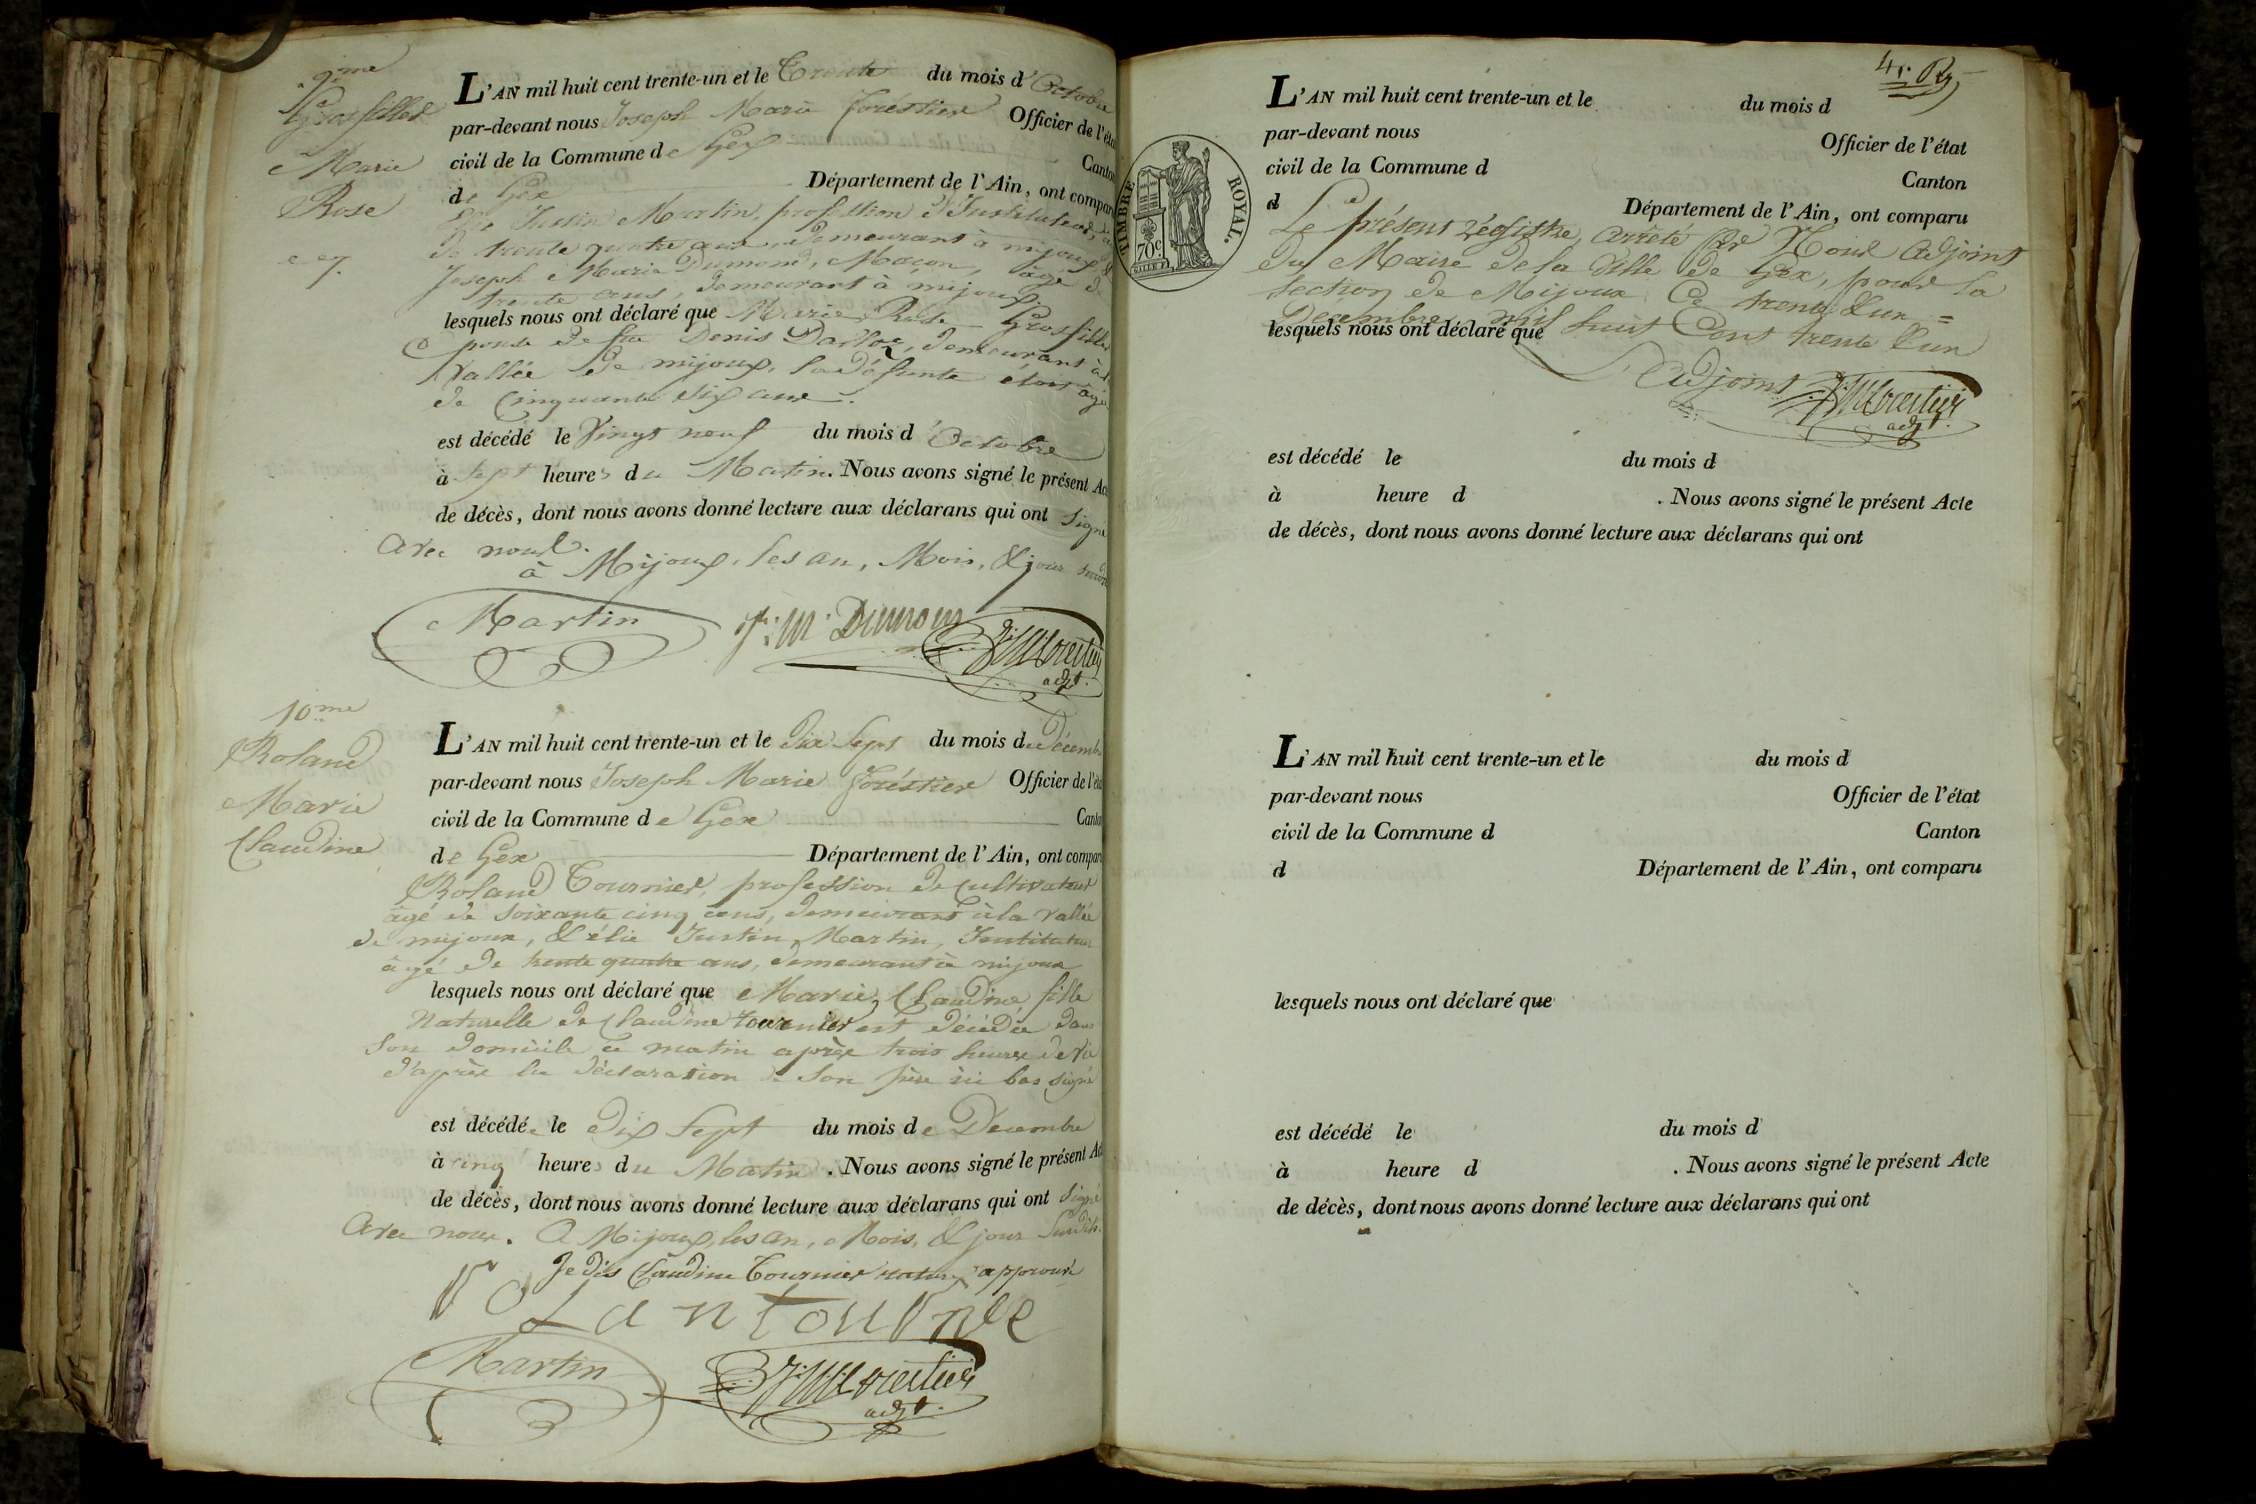 9.me
Grosfilles
Marie
Rose
L'AN mil huit cent trente-un et le Trente du mois d'Octobre
par-devant nous Joseph Marie Foréstier Officier de l'éta
civil de la Commune de Gex Canton
de Gex Département de l'Ain, ont compar
Justin Martin, profession d'Instituteur,
de trente quatre ans, demeurant à mijoux, &
Joseph Marie Dumond, Maçon, agé de
trente ans, demeurant à mijoux.
lesquels nous ont déclaré que Marie Rose Grosfilles
Epouse de feu Denis demeurant à
Vallée de mijoux, la défunte étoit âgée
de Cinquante Six ans.
est décédé le Vingt neuf du mois d'Octobre
à Sept heures du Matin. Nous avons signé le présent Ac
de décès, dont nous avons donné lecture aux déclarans qui ont signé
Avec nous.
à Mijoux, les an, Mois, & jour
Martin J: M. Dumond J: M Forestier
adjt.
10.me
Roland
Marie
Claudine
L'AN mil huit cent trente-un et le dix Sept du mois de Décembre
par-devant nous Joseph Marie Foréstier Officier de l'éta
civil de la Commune de Gex Canton
de Gex Département de l'Ain, ont compar
Roland Tournier, profession de Cultivateur
âgé de soixante cinq ans, demeurant à la Vallée
de mijoux, & élie Justin Martin, Instituteur
âgé de trente quatre ans, demeurant à mijoux
lesquels nous ont déclaré que Marie, Claudine fille
Naturelle de Claudine tournier est décédée dans
son domicile ce matin après trois heures de vie
d'après la déclaration de son père ici bas signé
est décédée le Dix Sept du mois de Décembre
à cinq heures du Matin. Nous avons signé le présent Ac
de décès, dont nous avons donné lecture aux déclarans qui ont Signé
Avec nous. A Mijoux, les an, Mois, & jour Susdits.
Je dis Claudine Tournier approuvé
rolantournee
Martin J: M Forestier
adjt.
41.
L'AN mil huit cent trente-un et le du mois d
par-devant nous Officier de l'état
civil de la Commune d Canton
d Département de l'Ain, ont comparu
TIMBRE ROYAL.
70c.
Le Présent régistre, arrêté par Nous Adjoint
du Maire de la Ville de Gex, pour la
section de Mijoux Ce trente & un =
Décembre mil huit Cent trente & un
lesquels nous ont déclaré que
L'Adjoint J: M Forestier
adjt.
est décédé le du mois d
à heure d . Nous avons signé le présent Acte
de décès, dont nous avons donné lecture aux déclarans qui ont
L'AN mil huit cent trente-un et le du mois d
par-devant nous Officier de l'état
civil de la Commune d Canton
d Département de l'Ain, ont comparu
lesquels nous ont déclaré que
est décédé le du mois d
à heure d . Nous avons signé le présent Acte
de décès, dont nous avons donné lecture aux déclarans qui ont